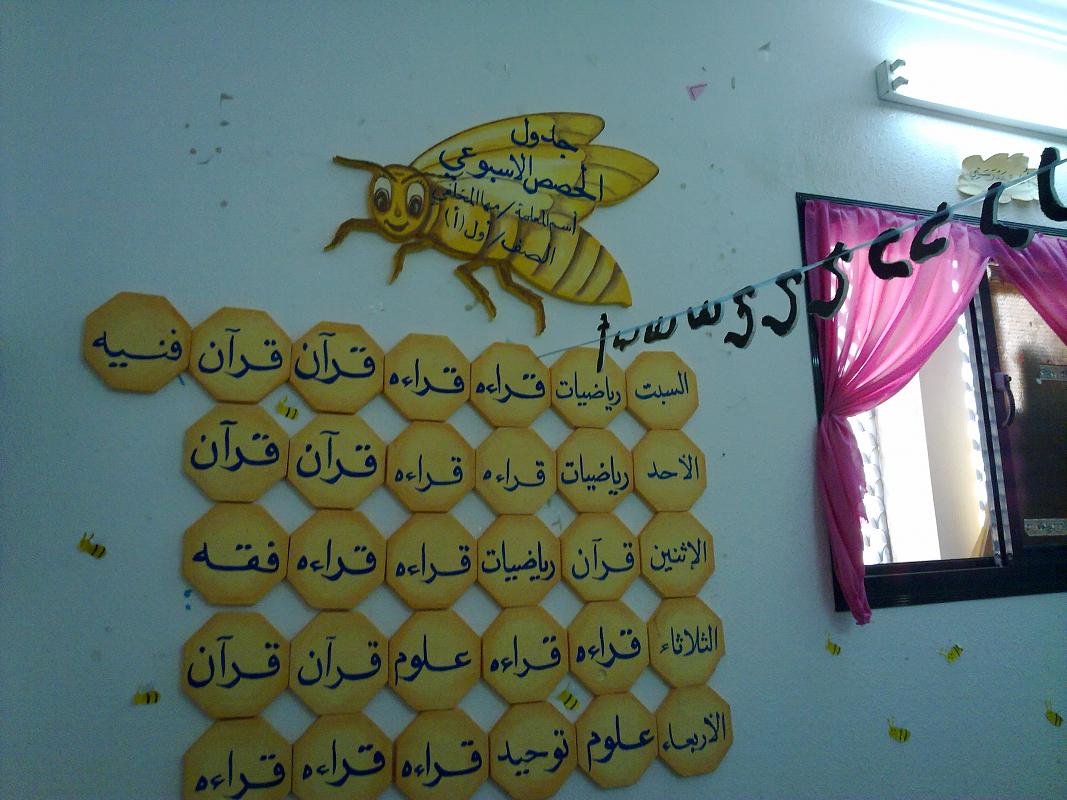 جدول
الحصص الاسبوعي
أسم المعلمة / مها المخلفي
الصف / أول (أ)
السبت رياضيات قراءه قراءه قرآن قرآن فنيه
الأحد رياضيات قراءه قراءه قرآن قرآن
الإثنين قرآن رياضيات قراءه قراءه فقه
الثلاثاء قراءه قراءه علوم قرآن قرآن
الأربعاء علوم توحيد قراءه قراءه قراءه